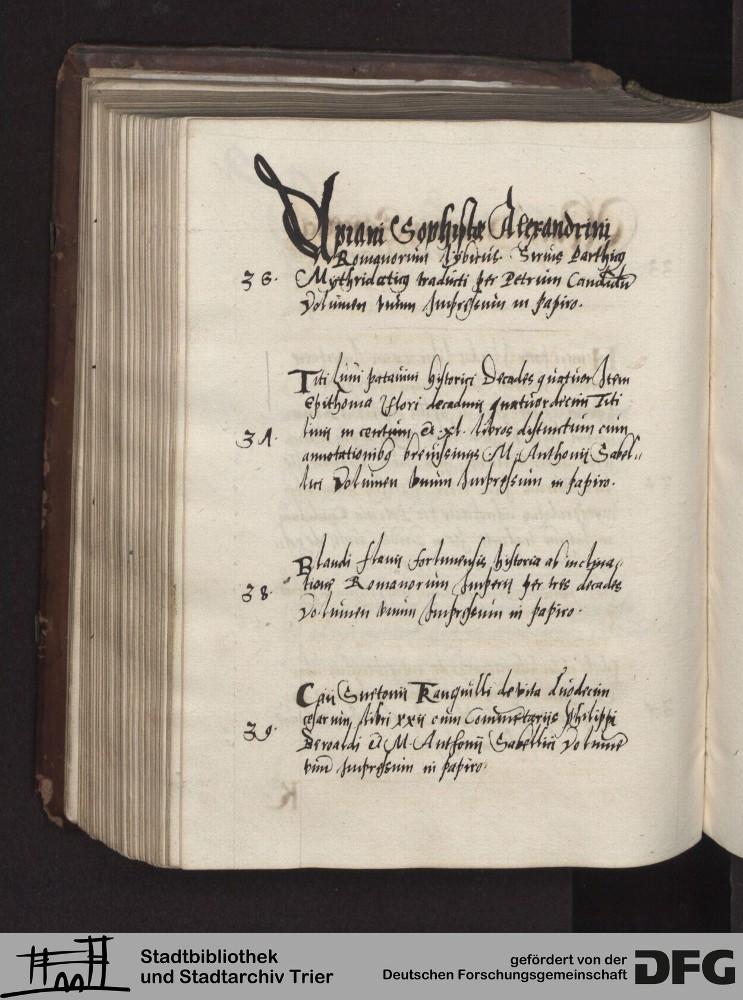 Apiani Sophistæ Alexandrini
Romanorum Lybicus. Sirius Parthicq
36. Mythridaticq traducti per Petrum Candidū
Volumen vnum Impressum in papiro.
Titi Liuii patauini historici Decades quatuor Item
Epithoma Flori decadum quatuordecim Titi
Liuii in centum et xl. libros distinctum cum
37. annotationibq breuissimis M. Anthonii Sabel-
lici Volumen vnum Impressum in papiro.
Blandi Flauij Forliuiensis historia ab inclina-
38. tione Romanorum Imperij per tres decades
Volumen vnum Impressum in papiro.
Caii Suetonii Tranquilli de vita duodecim
cesarum, libri xxij cum Commētarijs Philippi
39. Beroaldi et M. Anthonij Sabellici Volumē
vnū Impressum in papiro.
Stadtbibliothek
und Stadtarchiv Trier
gefördert von der
Deutschen Forschungsgemeinschaft
DFG